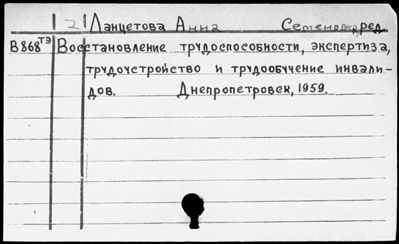 21 Ланцетова Анна Семеновна, ред.
В868тэ Восстановление трудоспособности, экспертиза,
трудоустройство и трудообучение инвали-
дов. Днепропетровск, 1959.